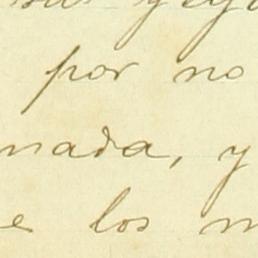 por no
nada, y
e los m